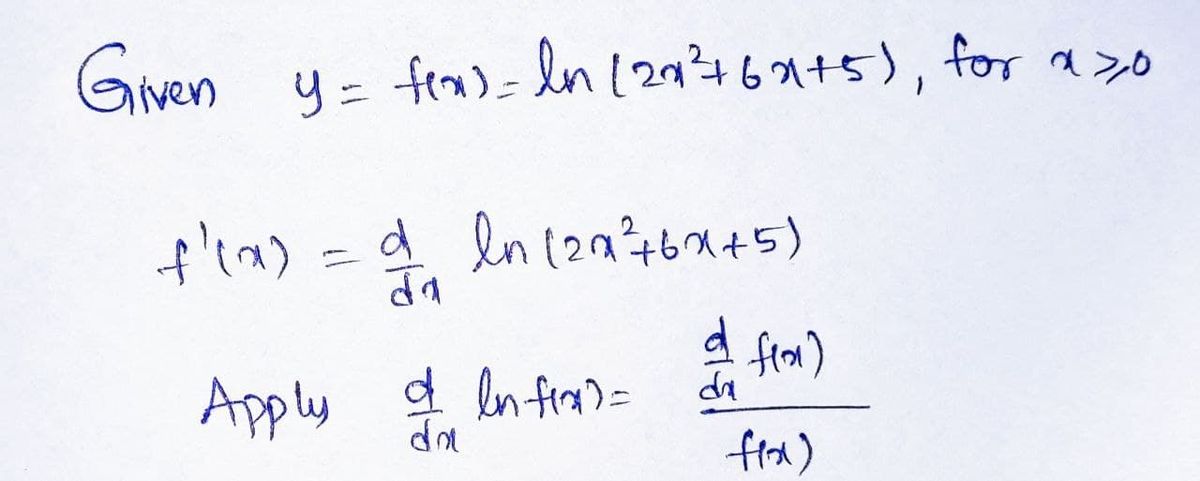 Given y = f(x) = ln (2x²+6x+5), for x ≥ 0
f'(x) = d/dx ln (2x²+6x+5)
Apply d/dx ln f(x) = d/dx f(x) / f(x)